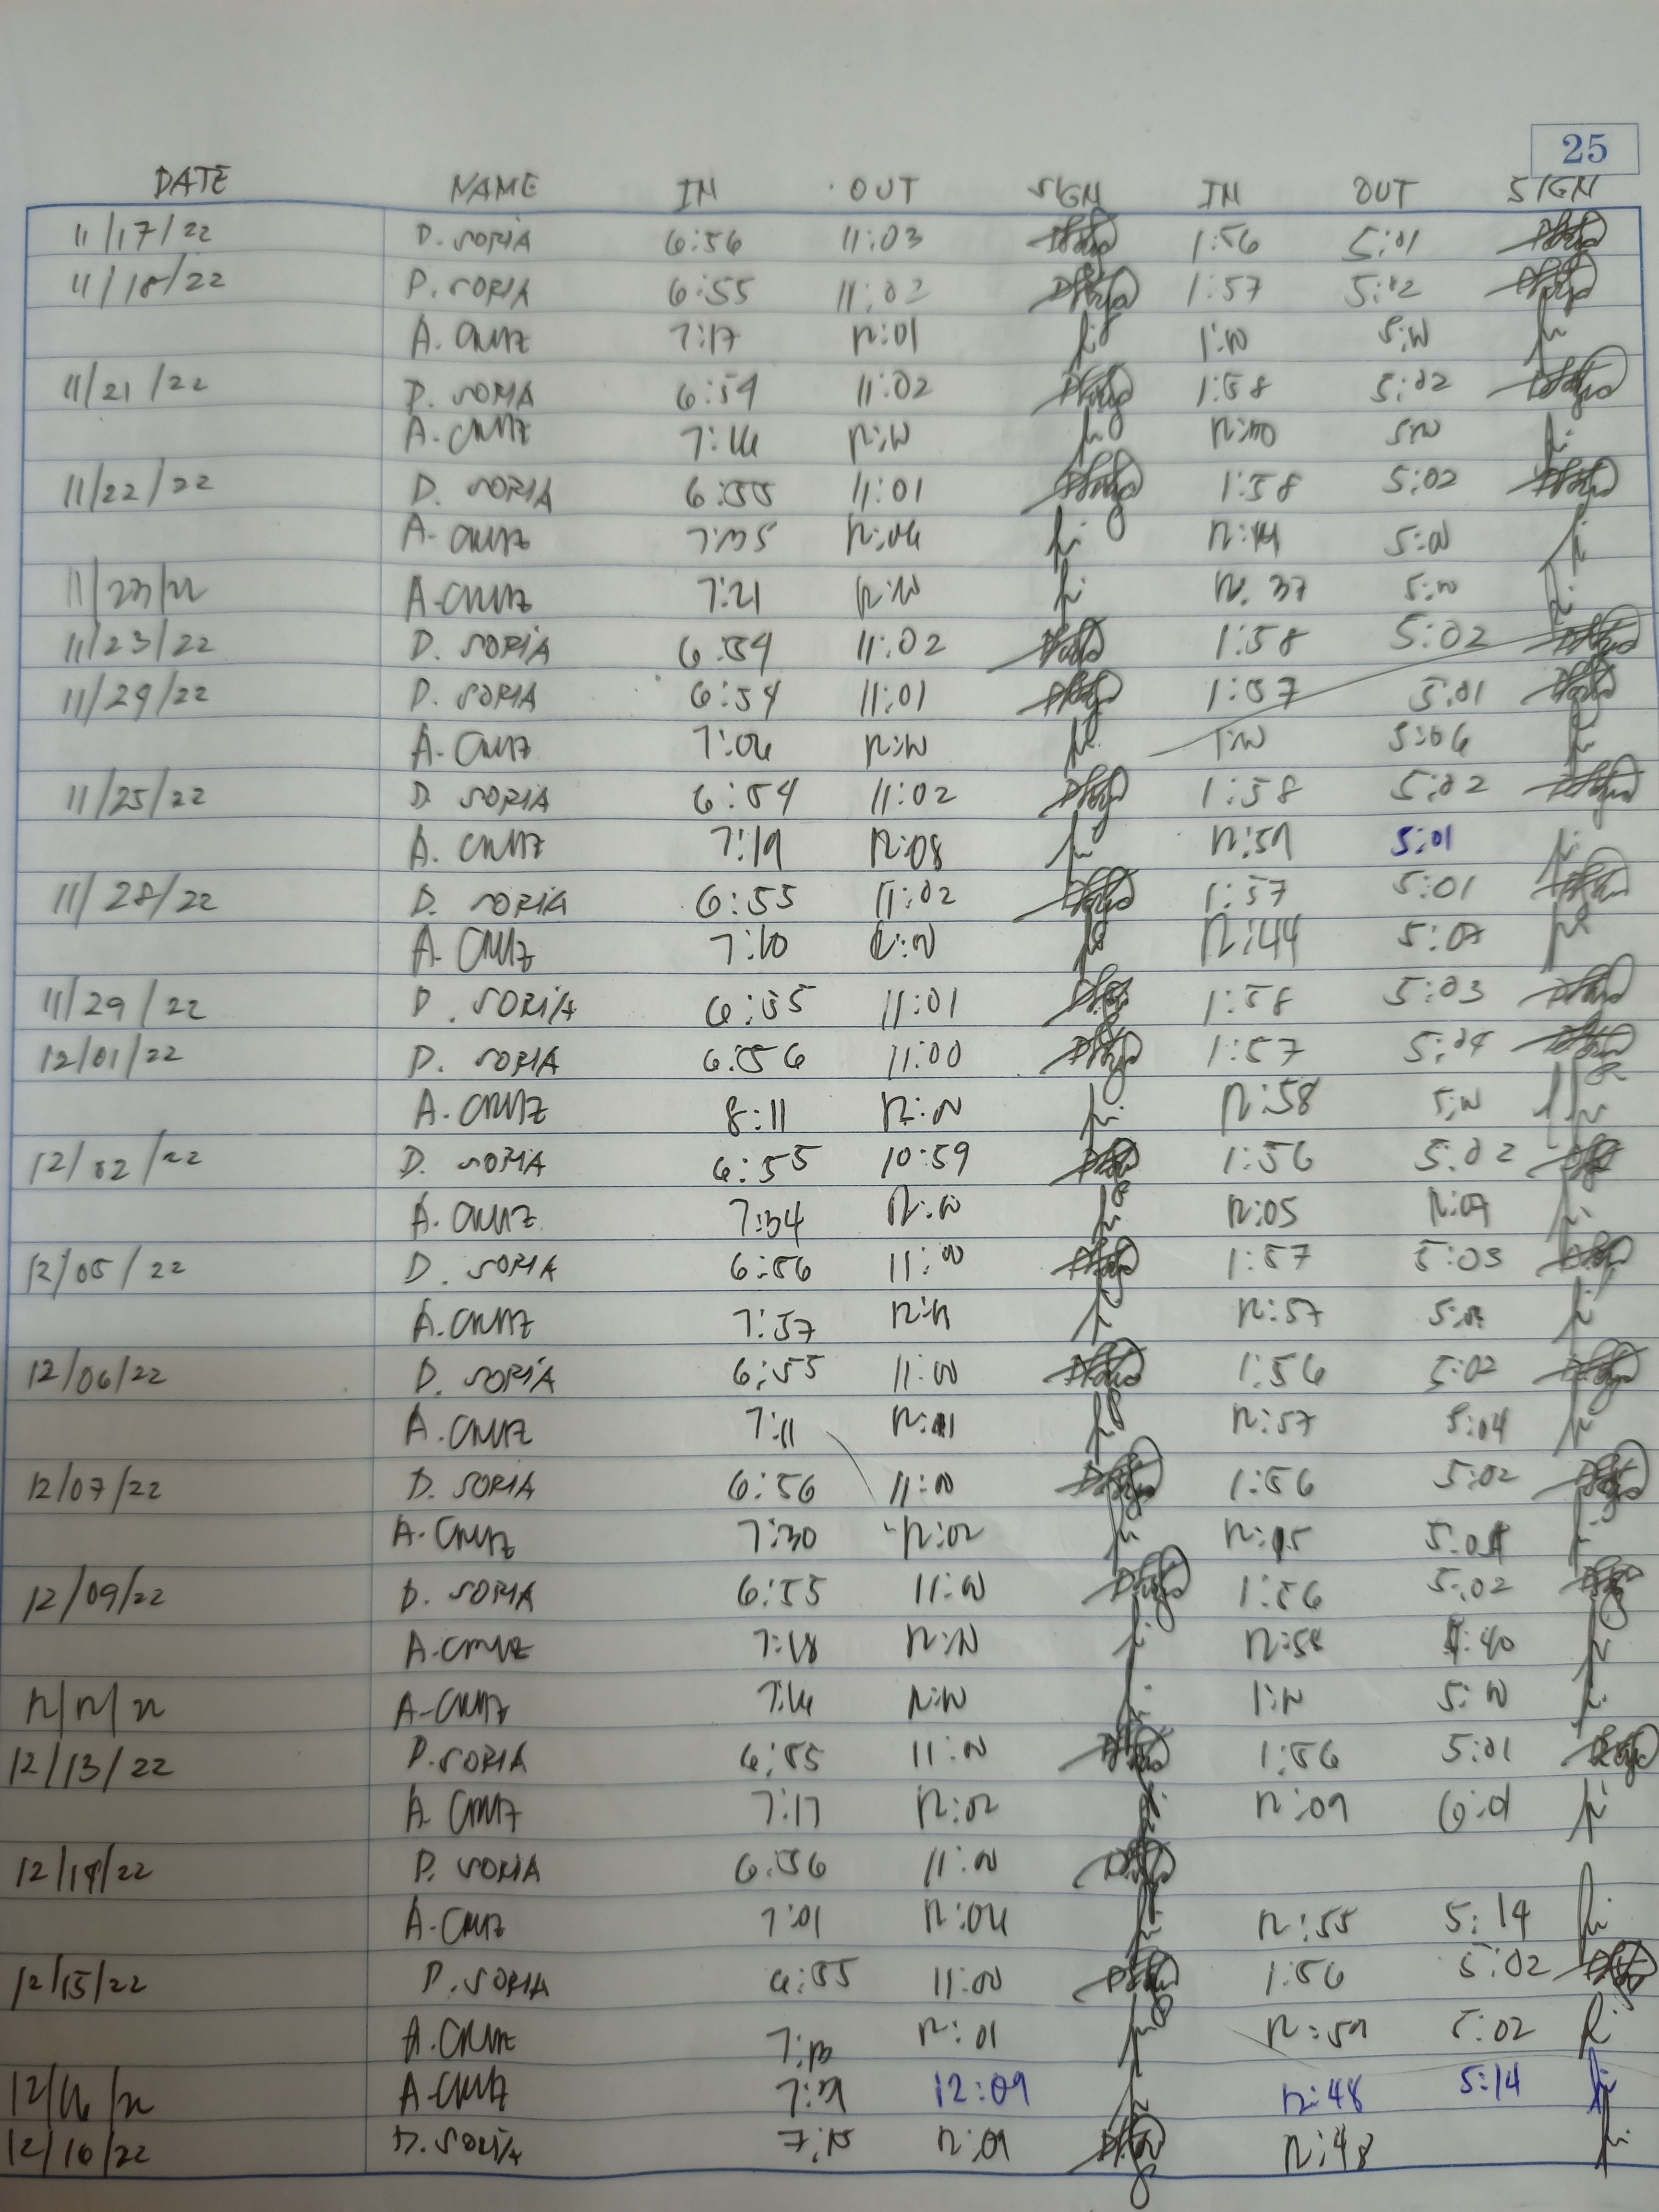 25
DATE NAME IN OUT SIGN IN OUT SIGN
11/17/22 D. SORIA 6:56 11:03 1:56 5:01
11/18/22 D. SORIA 6:55 11:02 1:57 5:02
A. CRUZ 7:17 12:01 1:00 5:00
11/21/22 D. SORIA 6:54 11:02 1:58 5:02
A. CRUZ 7:16 12:00 5:00
11/22/22 D. SORIA 6:55 11:01 1:58 5:02
A. CRUZ 7:35 12:06 5:00
11/23/22 A. CRUZ 7:21 12:00 12:37 5:00
11/23/22 D. SORIA 6:54 11:02 1:58 5:02
11/24/22 D. SORIA 6:54 11:01 1:57 5:01
A. CRUZ 7:06 12:00 1:00 5:06
11/25/22 D. SORIA 6:54 11:02 1:58 5:02
A. CRUZ 7:19 12:08 12:59 5:01
11/28/22 D. SORIA 6:55 11:02 1:57 5:01
A. CRUZ 7:10 12:00 12:44 5:07
11/29/22 D. SORIA 6:55 11:01 1:58 5:03
12/01/22 D. SORIA 6:56 11:00 1:57 5:04
A. CRUZ 8:11 12:00 12:58 5:00
12/02/22 D. SORIA 6:55 10:59 1:56 5:02
A. CRUZ 7:34 12:00 12:05
12/05/22 D. SORIA 6:56 11:00 1:57 5:03
A. CRUZ 7:57 12:57
12/06/22 D. SORIA 6:55 11:00 1:56 5:02
A. CRUZ 7:11 12:01 12:57 5:04
12/07/22 D. SORIA 6:56 11:00 1:56 5:02
A. CRUZ 7:30 12:02 12:15
12/09/22 D. SORIA 6:55 11:00 1:56 5:02
A. CRUZ 7:18 12:58
12/12/22 A. CRUZ 7:16 12:00 5:00
12/13/22 D. SORIA 6:55 11:00 1:56 5:01
A. CRUZ 7:17 12:02 12:09 6:01
12/14/22 D. SORIA 6:56 11:00
A. CRUZ 7:01 12:06 12:55 5:14
12/15/22 D. SORIA 6:55 11:00 1:56 5:02
A. CRUZ 12:01 12:59 5:02
12/16/22 A. CRUZ 12:09 12:48 5:14
12/16/22 D. SORIA 12:09 12:48